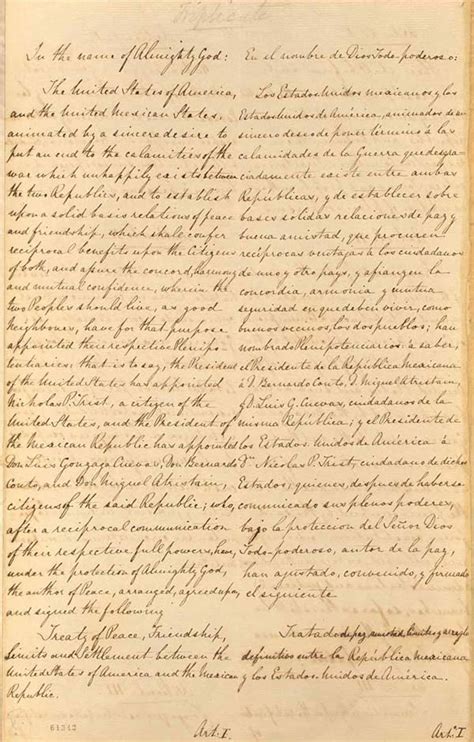 Triplicate
In the name of Almighty God:
The United States of America,
and the United Mexican States,
animated by a sincere desire to
put an end to the calamities of the
war which unhappily exists between
the two Republics, and to establish
upon a solid basis relations of peace
and friendship, which shall confer
reciprocal benefits upon the Citizens
of both, and assure the concord, harmony
and mutual confidence, wherein the
two Peoples should live, as good
Neighbours, have for that purpose
appointed their respective Plenipo-
tentiaries: that is to say, the President
of the United States has appointed
Nicholas P. Trist, a citizen of the
United States, and the President of
the Mexican Republic has appointed
Don Luis Gonzaga Cuevas, Don Bernardo
Couto, and Don Miguel Atristain,
citizens of the said Republic; who,
after a reciprocal communication
of their respective full powers, have,
under the protection of Almighty God,
the author of Peace, arranged, agreed upon,
and signed the following
Treaty of Peace, Friendship,
Limits and Settlement between the
United States of America and the Mexican
Republic.
61342
Art: I.
En el nombre de Dios Todo-poderoso:
Los Estados Unidos mexicanos y los
Estados Unidos de América, animados de un
sincero deseo de poner término à las
calamidades de la Guerra que desgra-
ciadamente existe entre ambas
Repúblicas, y de establecer sobre
bases solidas relaciones de paz y
buena amistad, que procuren
reciprocas ventajas à los ciudadanos
de uno y otro pays, y afiancen la
concordia, armonia y mutua
seguridad en que deben vivir, como
buenos vecinos, los dos pueblos; han
nombrado Plenipotenciarios: à saber,
el Presidente de la República Mexicana
à D. Bernardo Couto, D. Miguel Atristain,
y D. Luis G. Cuevas, ciudadanos de la
misma República; y el Presidente de
los Estados Unidos de América à
Dn. Nicolas P. Trist, ciudadano de dichos
Estados; quienes, despues de haberse
comunicado sus plenos poderes,
bajo la proteccion del Señor Dios
Todo-poderoso, autor de la paz,
han ajustado, convenido, y firmado
el siguiente
Tratado de paz, amistad, limites y arreglo
definitivo entre la República Mexicana
y los Estados Unidos de América.
Art.º I